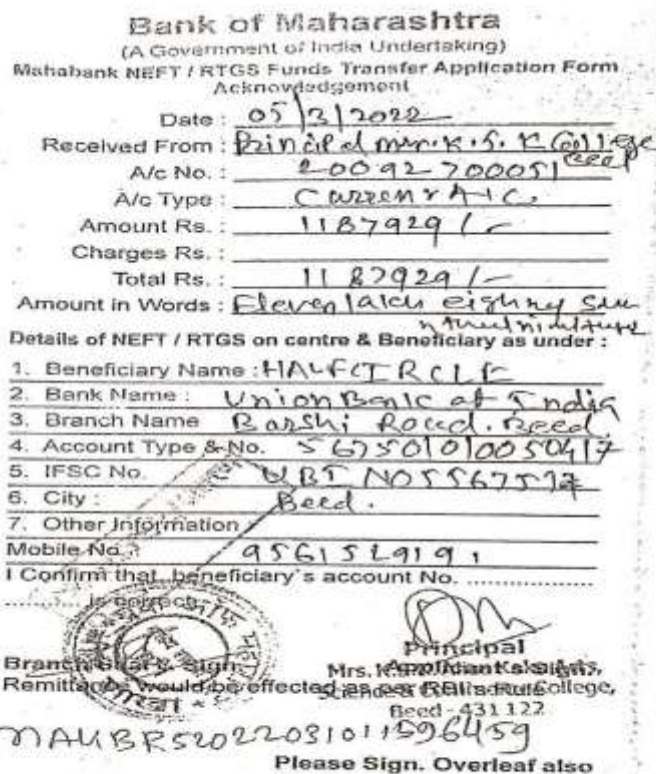 Bank of Maharashtra
(A Government of India Undertaking)
Mahabank NEFT / RTGS Funds Transfer Application Form
Acknowledgement
Date : 05/3/2022
Received From : Principal mrs. K. S. K College Beed
A/c No. : 20092700051
A/c Type : Current A/C.
Amount Rs. : 1187929/-
Charges Rs. :
Total Rs. : 1187929/-
Amount in Words : Eleven lakh eighty
Details of NEFT / RTGS on centre & Beneficiary as under :
1. Beneficiary Name : HALFCIRCLE
2. Bank Name : Union Bank of India
3. Branch Name Barshi Road. Beed
4. Account Type & No. 567501010050417
5. IFSC No.
6. City : Beed.
7. Other Information :
Mobile No. : 9561529191
I Confirm that beneficiary's account No. ..................
......... is correct
Principal
Branch Sign. Mrs. Applicant
Remittance would be effected as per RBI's Rule College,
Beed - 431 122
Please Sign. Overleaf also